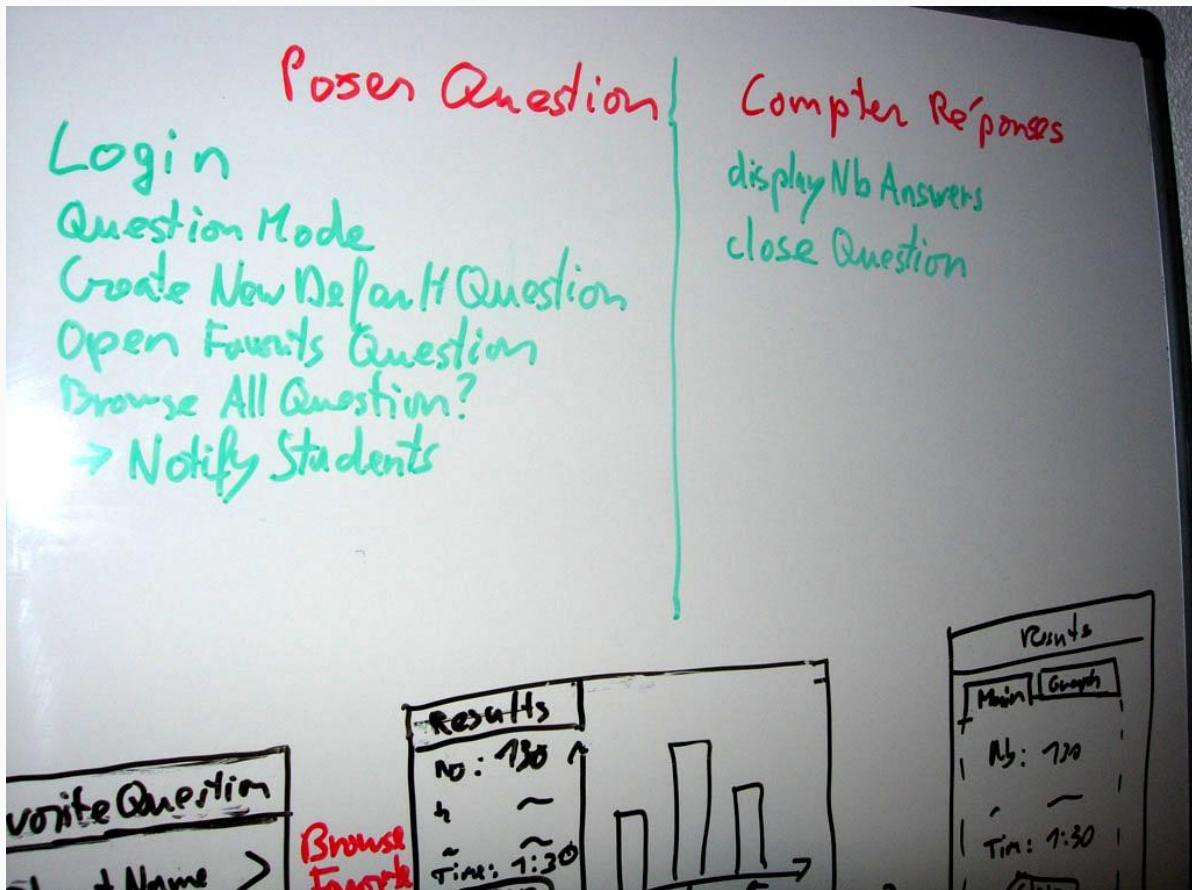 Poser Question
Login
Question Mode
Create New Default Question
Open Favorits Question
Browse All Question?
→ Notify Students
Compter Réponses
display Nb Answers
close Question
vorite Question
Name >
Browse
Favorite
Results
No: 130
Time: 1:30
Results
Main
Graph
Nb: 130
Tim: 1:30